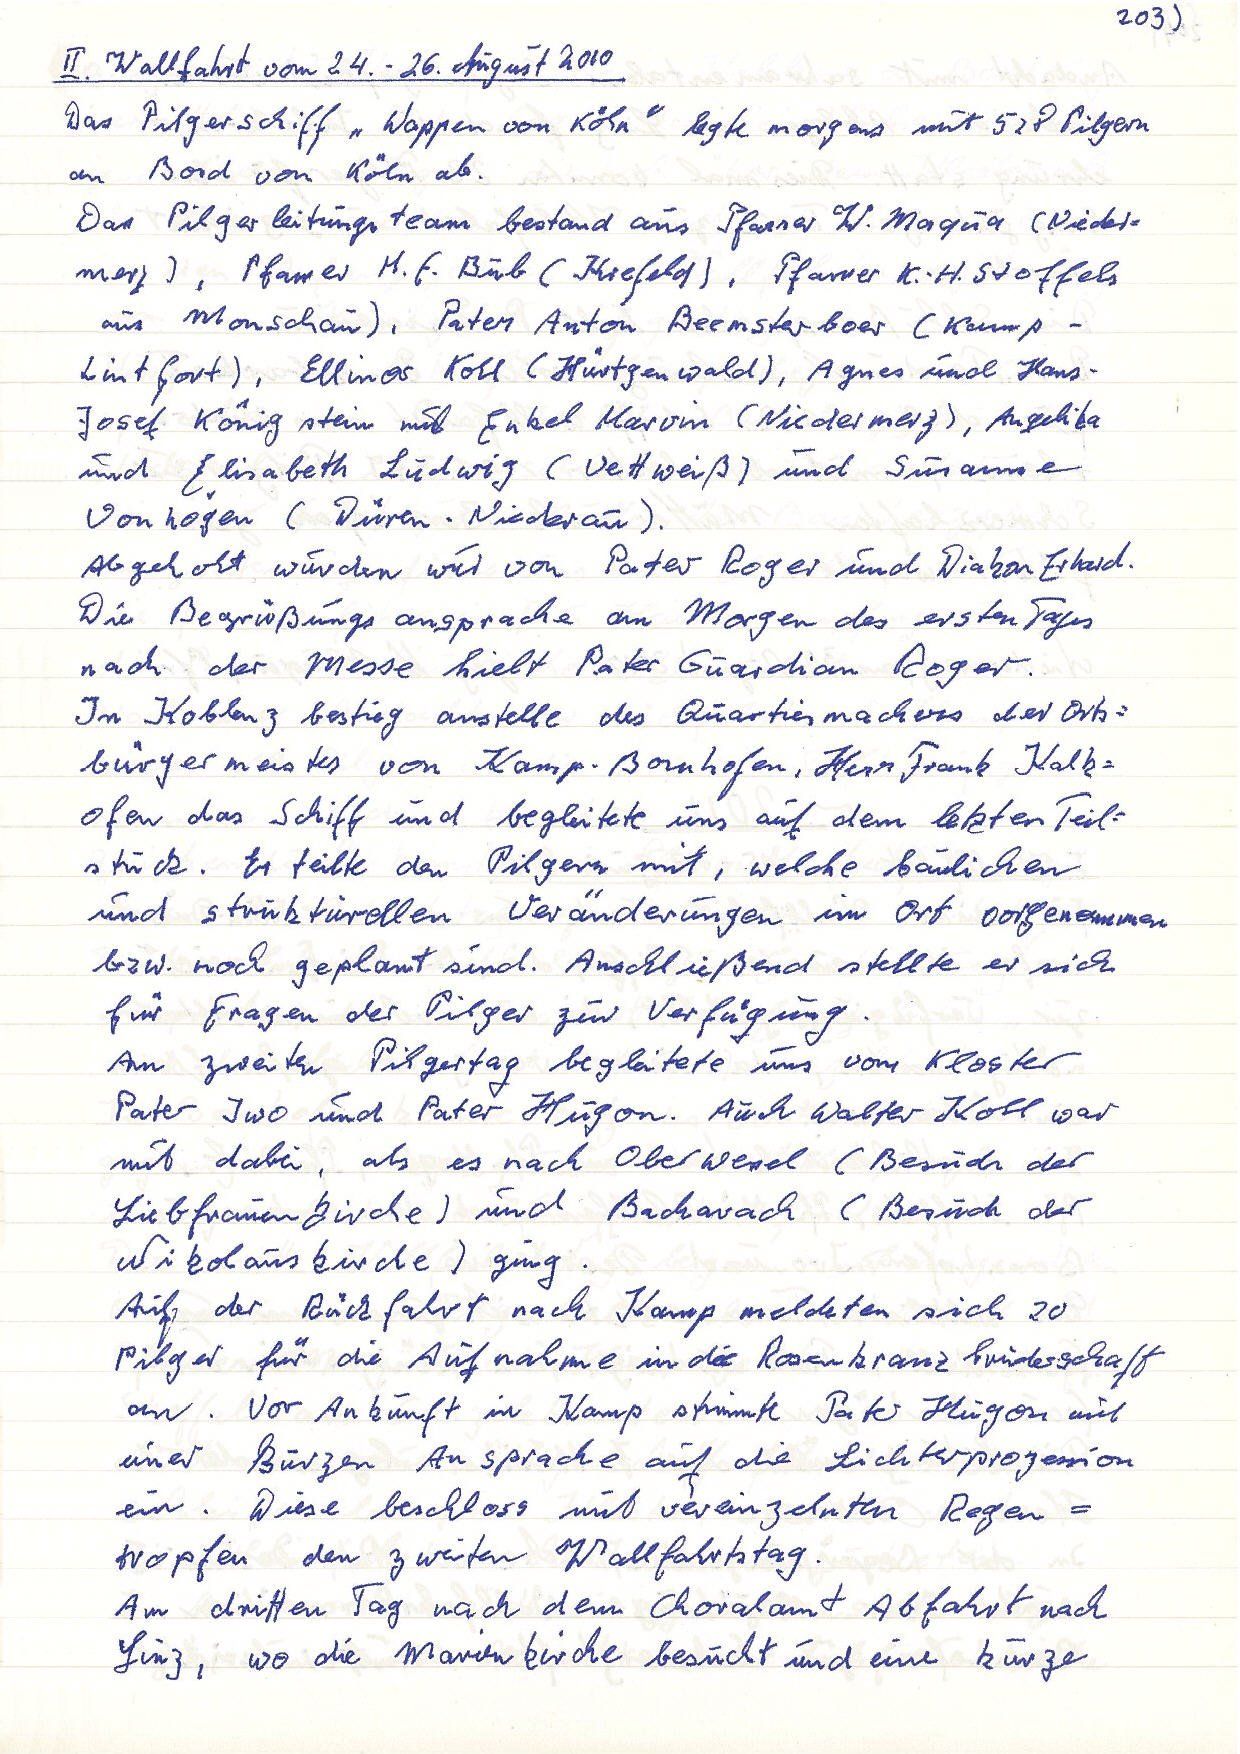 203)
II. Wallfahrt vom 24. - 26. August 2010
Das Pilgerschiff „Wappen von Köln" legte morgens mit 528 Pilgern
an Bord von Köln ab.
Das Pilgerleitungsteam bestand aus Pfarrer W. Maqua (Nieder=
merz), Pfarrer H. E. Bürb (Krefeld), Pfarrer K.-H. Stoffels
aus Monschau), Pater Anton Beemsterboer (Kamp -
Lintfort), Ellinor Koll (Hürtgenwald), Agnes und Hans-
Josef Königstein mit Enkel Marvin (Niedermerz), Angelika
und Elisabeth Ludwig (Vettweiß) und Susanne
Vonhögen (Düren - Niederau).
Abgeholt wurden wir von Pater Roger und Diakon Erhard.
Die Begrüßungsansprache am Morgen des ersten Tages
nach der Messe hielt Pater Guardian Roger.
In Koblenz bestieg anstelle des Quartiermachers der Orts=
bürgermeister von Kamp-Bornhofen, Herr Frank Kalk=
ofen das Schiff und begleitete uns auf dem letzten Teil=
stück. Er teilte den Pilgern mit, welche baulichen
und strukturellen Veränderungen im Ort vorgenommen
bzw. noch geplant sind. Anschließend stellte er sich
für Fragen der Pilger zur Verfügung.
Am zweiten Pilgertag begleitete uns vom Kloster
Pater Iwo und Pater Hugon. Auch Walter Koll war
mit dabei, als es nach Oberwesel (Besuch der
Liebfrauenkirche) und Bacharach (Besuch der
Nikolauskirche) ging.
Auf der Rückfahrt nach Kamp meldeten sich 20
Pilger für die Aufnahme in die Rosenkranzbruderschaft
an. Vor Ankunft in Kamp stimmte Pater Hugon mit
einer kurzen Ansprache auf die Lichterprozession
ein. Diese beschloss mit vereinzelnten Regen=
tropfen den zweiten Wallfahrtstag.
Am dritten Tag nach dem Choralamt Abfahrt nach
Linz, wo die Marienkirche besucht und eine kurze